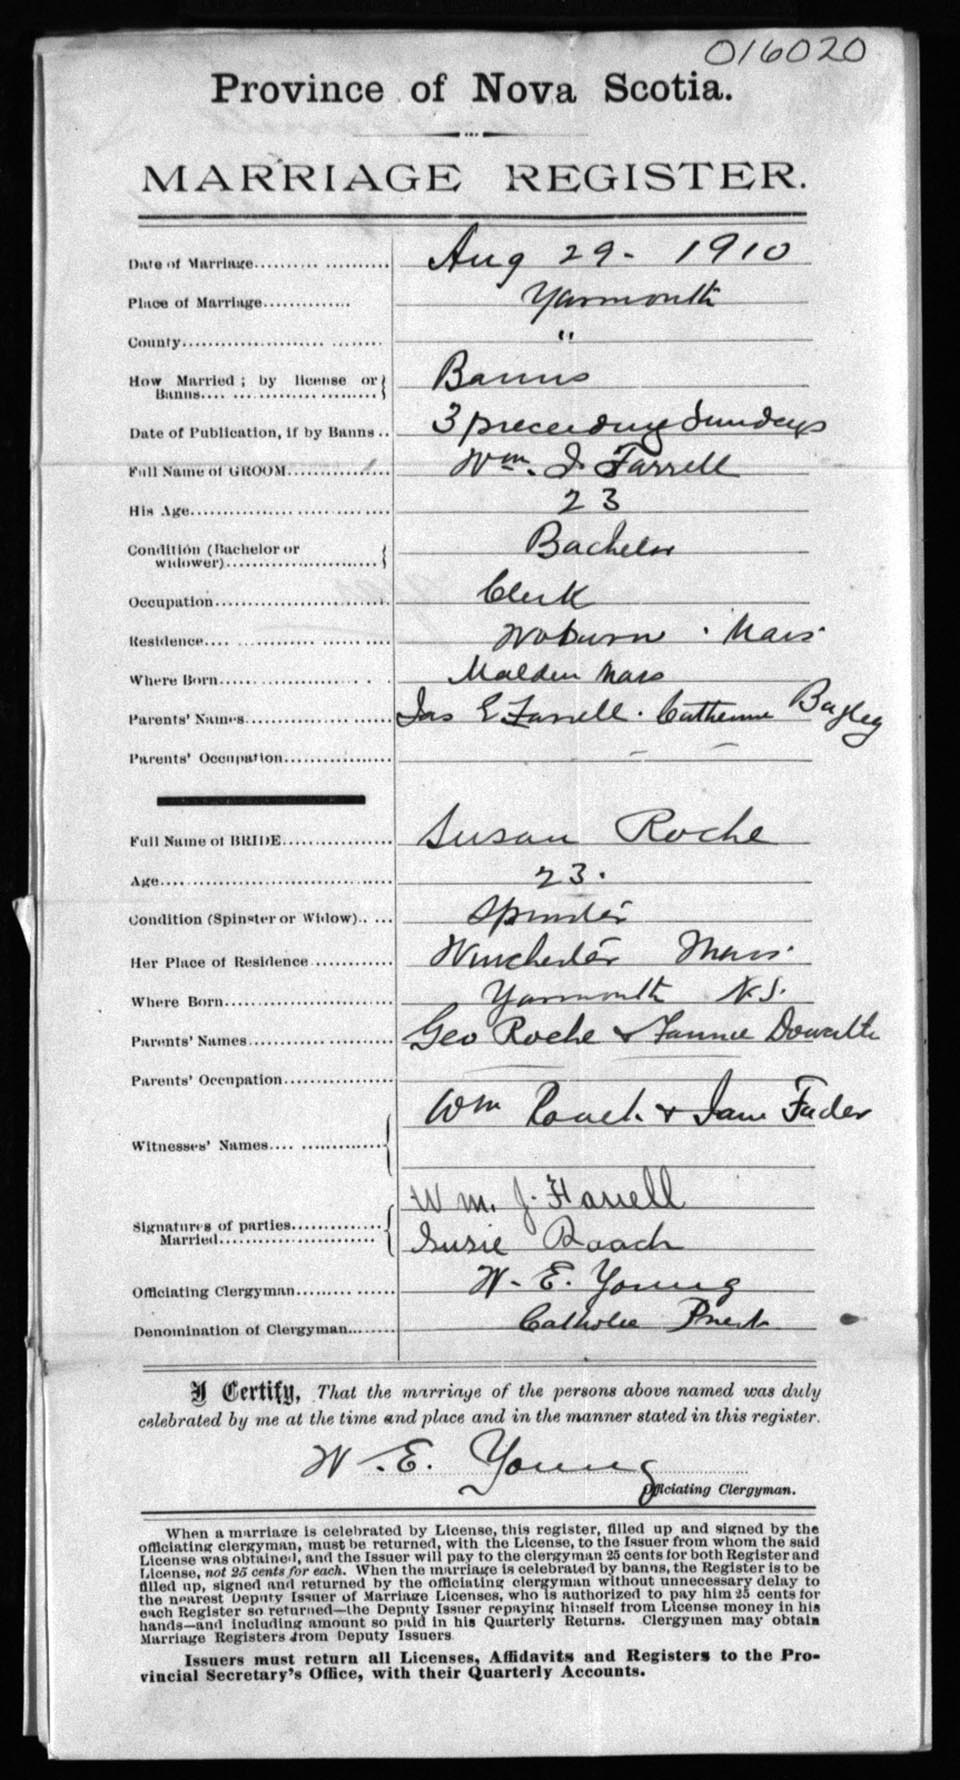 016020
Province of Nova Scotia.
MARRIAGE REGISTER.
Date of Marriage.................... Aug 29 - 1910
Place of Marriage.............. Yarmouth
County.................... "
How Married ; by license or Banns.................... Banns
Date of Publication, if by Banns .. 3 preceeding Sundays
Full Name of GROOM............... Wm. J. Farrell
His Age.................... 23
Condition (Bachelor or widower).................... Bachelor
Occupation.................... Clerk
Residence.................... Woburn . Mass
Where Born.................... Malden Mass
Parents' Names.................... Jas E Farrell . Catherine Bagley
Parents' Occupation.................... — —
Full Name of BRIDE................. Susan Roche
Age.................... 23.
Condition (Spinster or Widow)..... Spinster
Her Place of Residence ............ Winchester Mass.
Where Born.................... Yarmouth N.S.
Parents' Names.................... Geo Roche & Fannie
Parents' Occupation.................... —
Witnesses' Names.................... Wm Roach & Jane Fader
Signatures of parties Married.................... Wm. J. Farrell
Susie Roach
Officiating Clergyman............... W. E. Young
Denomination of Clergyman........ Catholic Priest
I Certify, That the marriage of the persons above named was duly
celebrated by me at the time and place and in the manner stated in this register.
W. E. Young
Officiating Clergyman.
When a marriage is celebrated by License, this register, filled up and signed by the
officiating clergyman, must be returned, with the License, to the Issuer from whom the said
License was obtained, and the Issuer will pay to the clergyman 25 cents for both Register and
License, not 25 cents for each. When the marriage is celebrated by banns, the Register is to be
filled up, signed and returned by the officiating clergyman without unnecessary delay to
the nearest Deputy Issuer of Marriage Licenses, who is authorized to pay him 25 cents for
each Register so returned—the Deputy Issuer repaying himself from License money in his
hands—and including amount so paid in his Quarterly Returns. Clergymen may obtain
Marriage Registers from Deputy Issuers
Issuers must return all Licenses, Affidavits and Registers to the Pro-
vincial Secretary's Office, with their Quarterly Accounts.